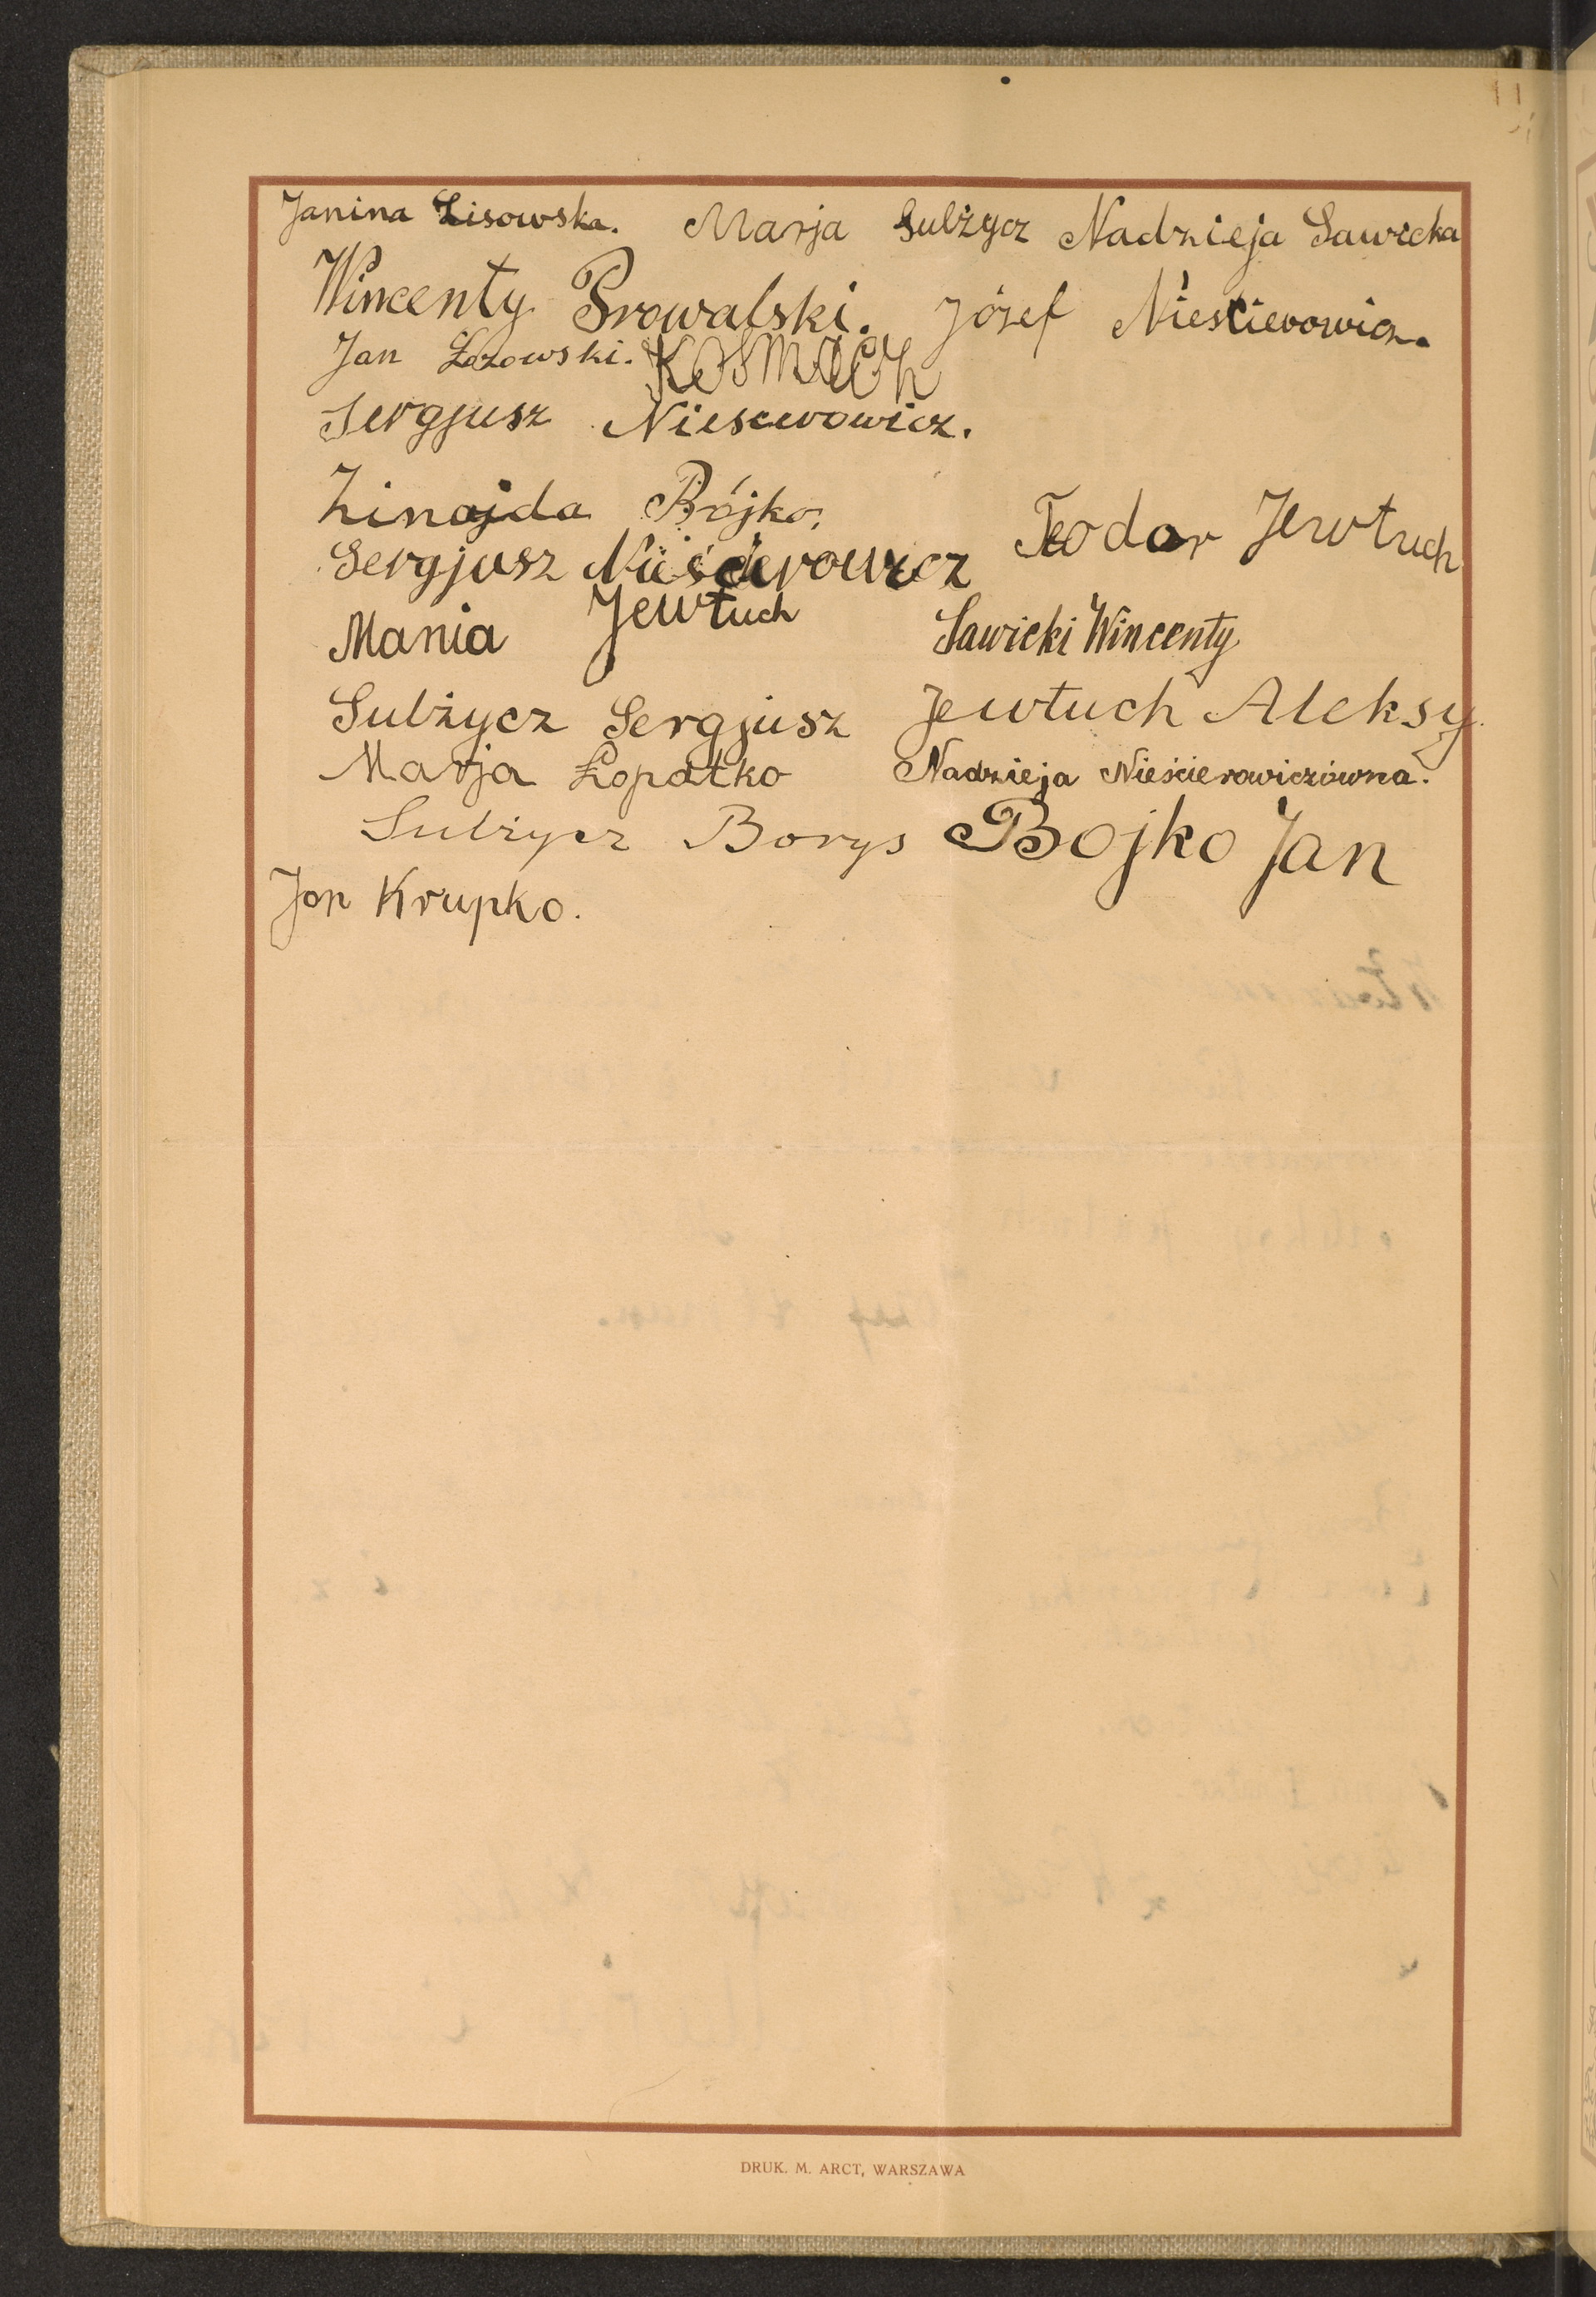 Janina Lisowska. Marja Sulżycz Nadzieja Sawicka
Wincenty Prowalski. Józef Nieścierowicz.
Jan Łozowski. KOSMACH
Sergjusz Niescerowicz.
Zinajda Bójko.
Teodor Jewtuch
Sergjusz Nieścierowicz
Mania Jewtuch Sawicki Wincenty
Sulżycz Sergjusz Jewtuch Aleksy.
Marja Łopatko Nadzieja Nieścierowiczówna.
Sulżycz Borys Bojko Jan
Jan Krupko.
DRUK. M. ARCT, WARSZAWA